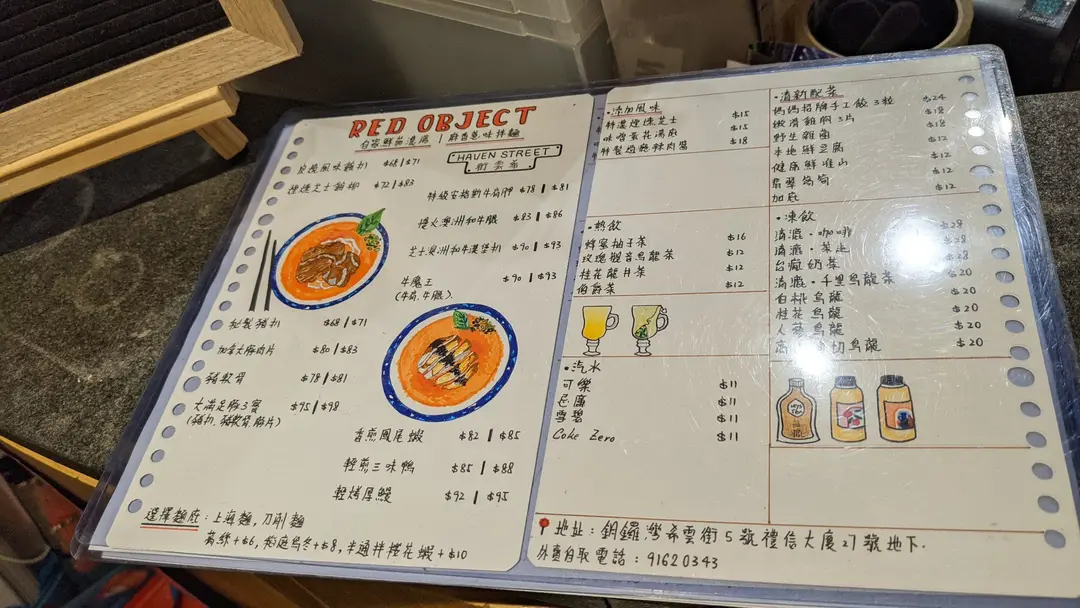 RED OBJECT
自家鮮茄濃湯 | 麻香惹味拌麵
HAVEN STREET
希雲街
風味雞扒 $68 | $71
芝士雞柳 $72 | $83
特級安格斯牛肩胛 $78 | $81
澳洲和牛腿 $83 | $86
芝士澳洲和牛漢堡扒 $90 | $93
牛魔王 $90 | $93
(牛肩,牛腿)
秘製豬扒 $68 | $71
加拿大豚肉片 $80 | $83
豬軟骨 $78 | $81
大滿足豚3寶 $95 | $98
(豬扒,豬軟骨,豚片)
香煎鳳尾蝦 $82 | $85
輕煎三味鴨 $85 | $88
輕烤厚鰻 $92 | $95
選擇麵底:上海麵,刀削麵
蔦絲+$6, 稻庭烏冬+$8, 半通拌櫻花蝦+$10
·添加風味
特濃煙燻芝士 $15
味噌蛋花湯底 $15
辣肉醬 $18
·熱飲
蜂蜜柚子茶 $16
玫瑰觀音烏龍茶 $12
桂花龍井茶 $12
伯爵茶 $12
·汽水
可樂 $11
忌廉 $11
雪碧 $11
Coke Zero $11
·清新配菜
媽媽招牌手工餃3粒 $24
嫩滑雞胸3片 $18
野生雜菌 $18
本地鮮豆腐 $12
健康鮮淮山 $12
翡翠 $12
加底 $12
·凍飲
滴漉·咖啡 $28
滴漉·茶走 $28
台瘋奶茶 $28
滴漉·千里烏龍茶 $20
白桃烏龍 $20
桂花烏龍 $20
人蔘烏龍 $20
烏龍 $20
地址:銅鑼灣希雲街5號禮信大廈27號地下.
外賣自取電話:91620343